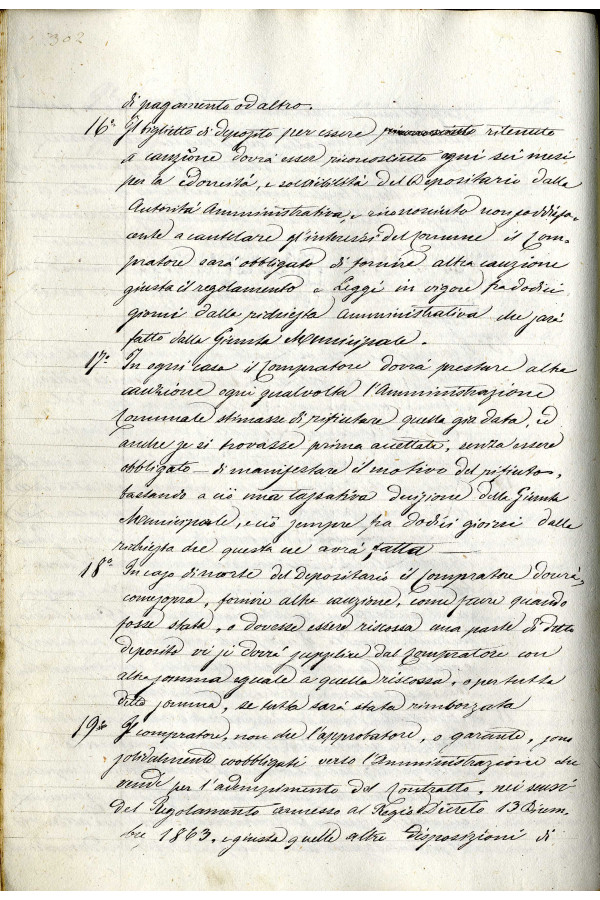 302
di pagamento od altro.
16° Il biglietto di deposito per essere ritenuto
a cauzione dovrà esser riconosciuto ogni sei mesi
per la idoneità, e solvibilità del Depositario dalla
Autorità Amministrativa, e riconosciuto non
cente a cautelare gl'interessi del Comune il Com-
pratore sarà obbligato di fornire altra cauzione
giusta il regolamento e Leggi in vigore fra dodici
giorni dalla richiesta amministrativa che sarà
fatta dalla Giunta Municipale.
17° In ogni caso il Compratore dovrà prestare altra
cauzione ogni qualvolta l'Amministrazione
Comunale stimasse di rifiutare quella già data, ed
anche se si trovasse prima accettata, senza essere
obbligato di manifestare il motivo del rifiuto,
bastando a ciò una tassativa decisione della Giunta
Municipale, e ciò sempre fra dodici giorni dalla
richiesta che questa ne avrà fatta
18° In caso di morte del Depositario il Compratore dovrà,
come sopra, fornire altra cauzione, come pure quando
fosse stata, o dovesse essere riscossa una parte di detto
deposito vi si dovrà supplire dal Compratore con
altra somma eguale a quella riscossa, o per tutta
detta somma, se tutta sarà stata rimborzata
19° Il compratore, non che l'approbatore, o garante, sono
solidalmente coobbligati verso l'Amministrazione che
vende per l'adempimento del contratto, nei sensi
del Regolamento annesso al Regio Decreto 13 Dicem-
bre 1863, e giusta quelle altre disposizioni di